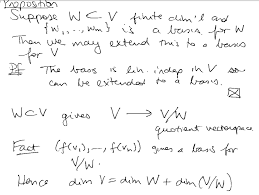 Proposition
Suppose W ⊂ V finite dim'l and
{w₁, ..., wₘ} is a basis for W
Then we may extend this to a basis
for V
Pf The basis is lin. indep in V so
can be extended to a basis.
W⊂V gives V → V/W
quotient vectorspace
Fact (f(v₁), ..., f(vₙ)) gives a basis for
V/W.
Hence dim V = dim W + dim (V/W)